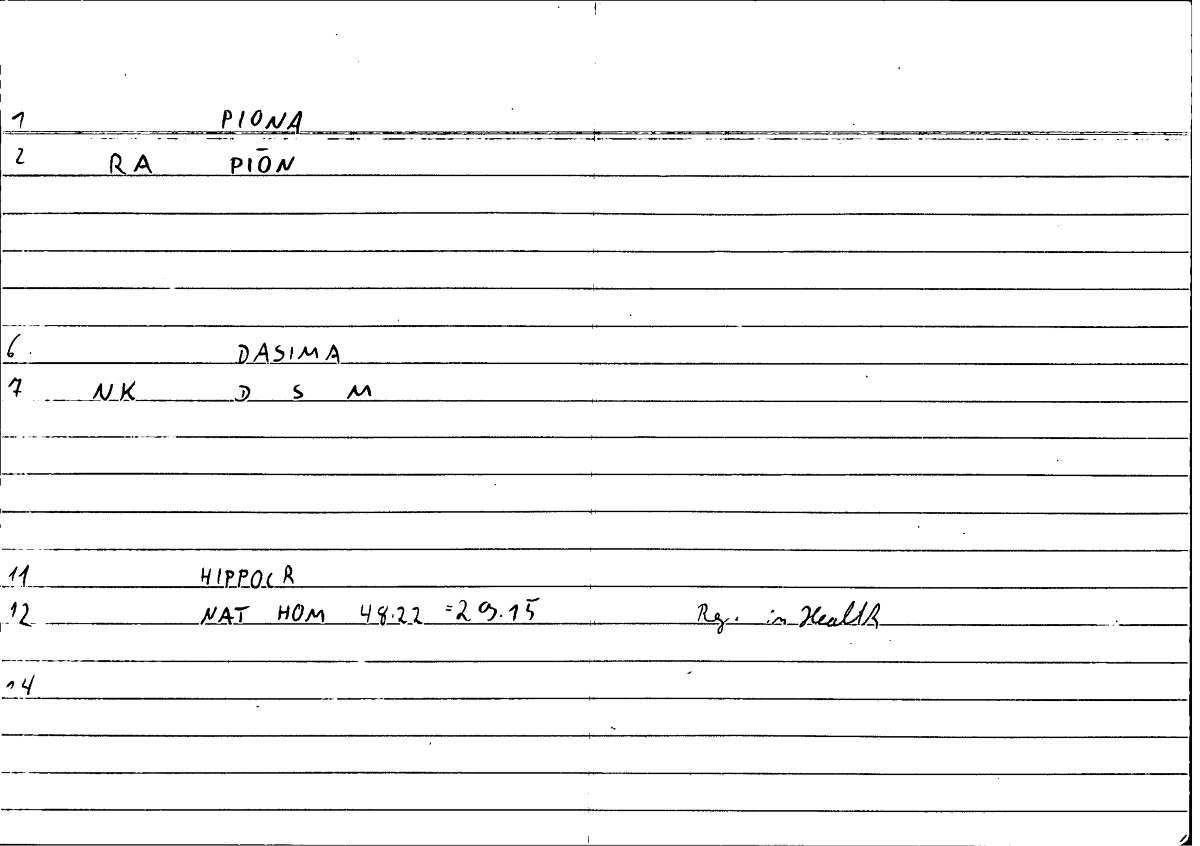 1 PIONA
2 RA PIŌN
6. DASIMA
7 NK D S M
11 HIPPOCR
12 NAT HOM 48.22 =29.15 Rg. in Health
14